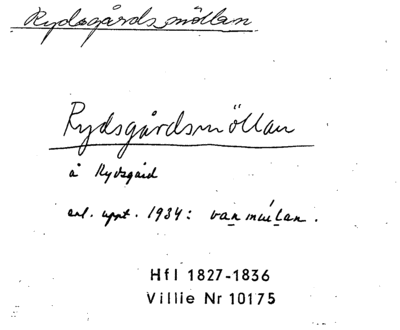 Rydsgårdsmöllan
Rydsgårdsmöllan
å Rydsgård
enl. uppt. 1934:
Hfl 1827-1836
Villie Nr 10175